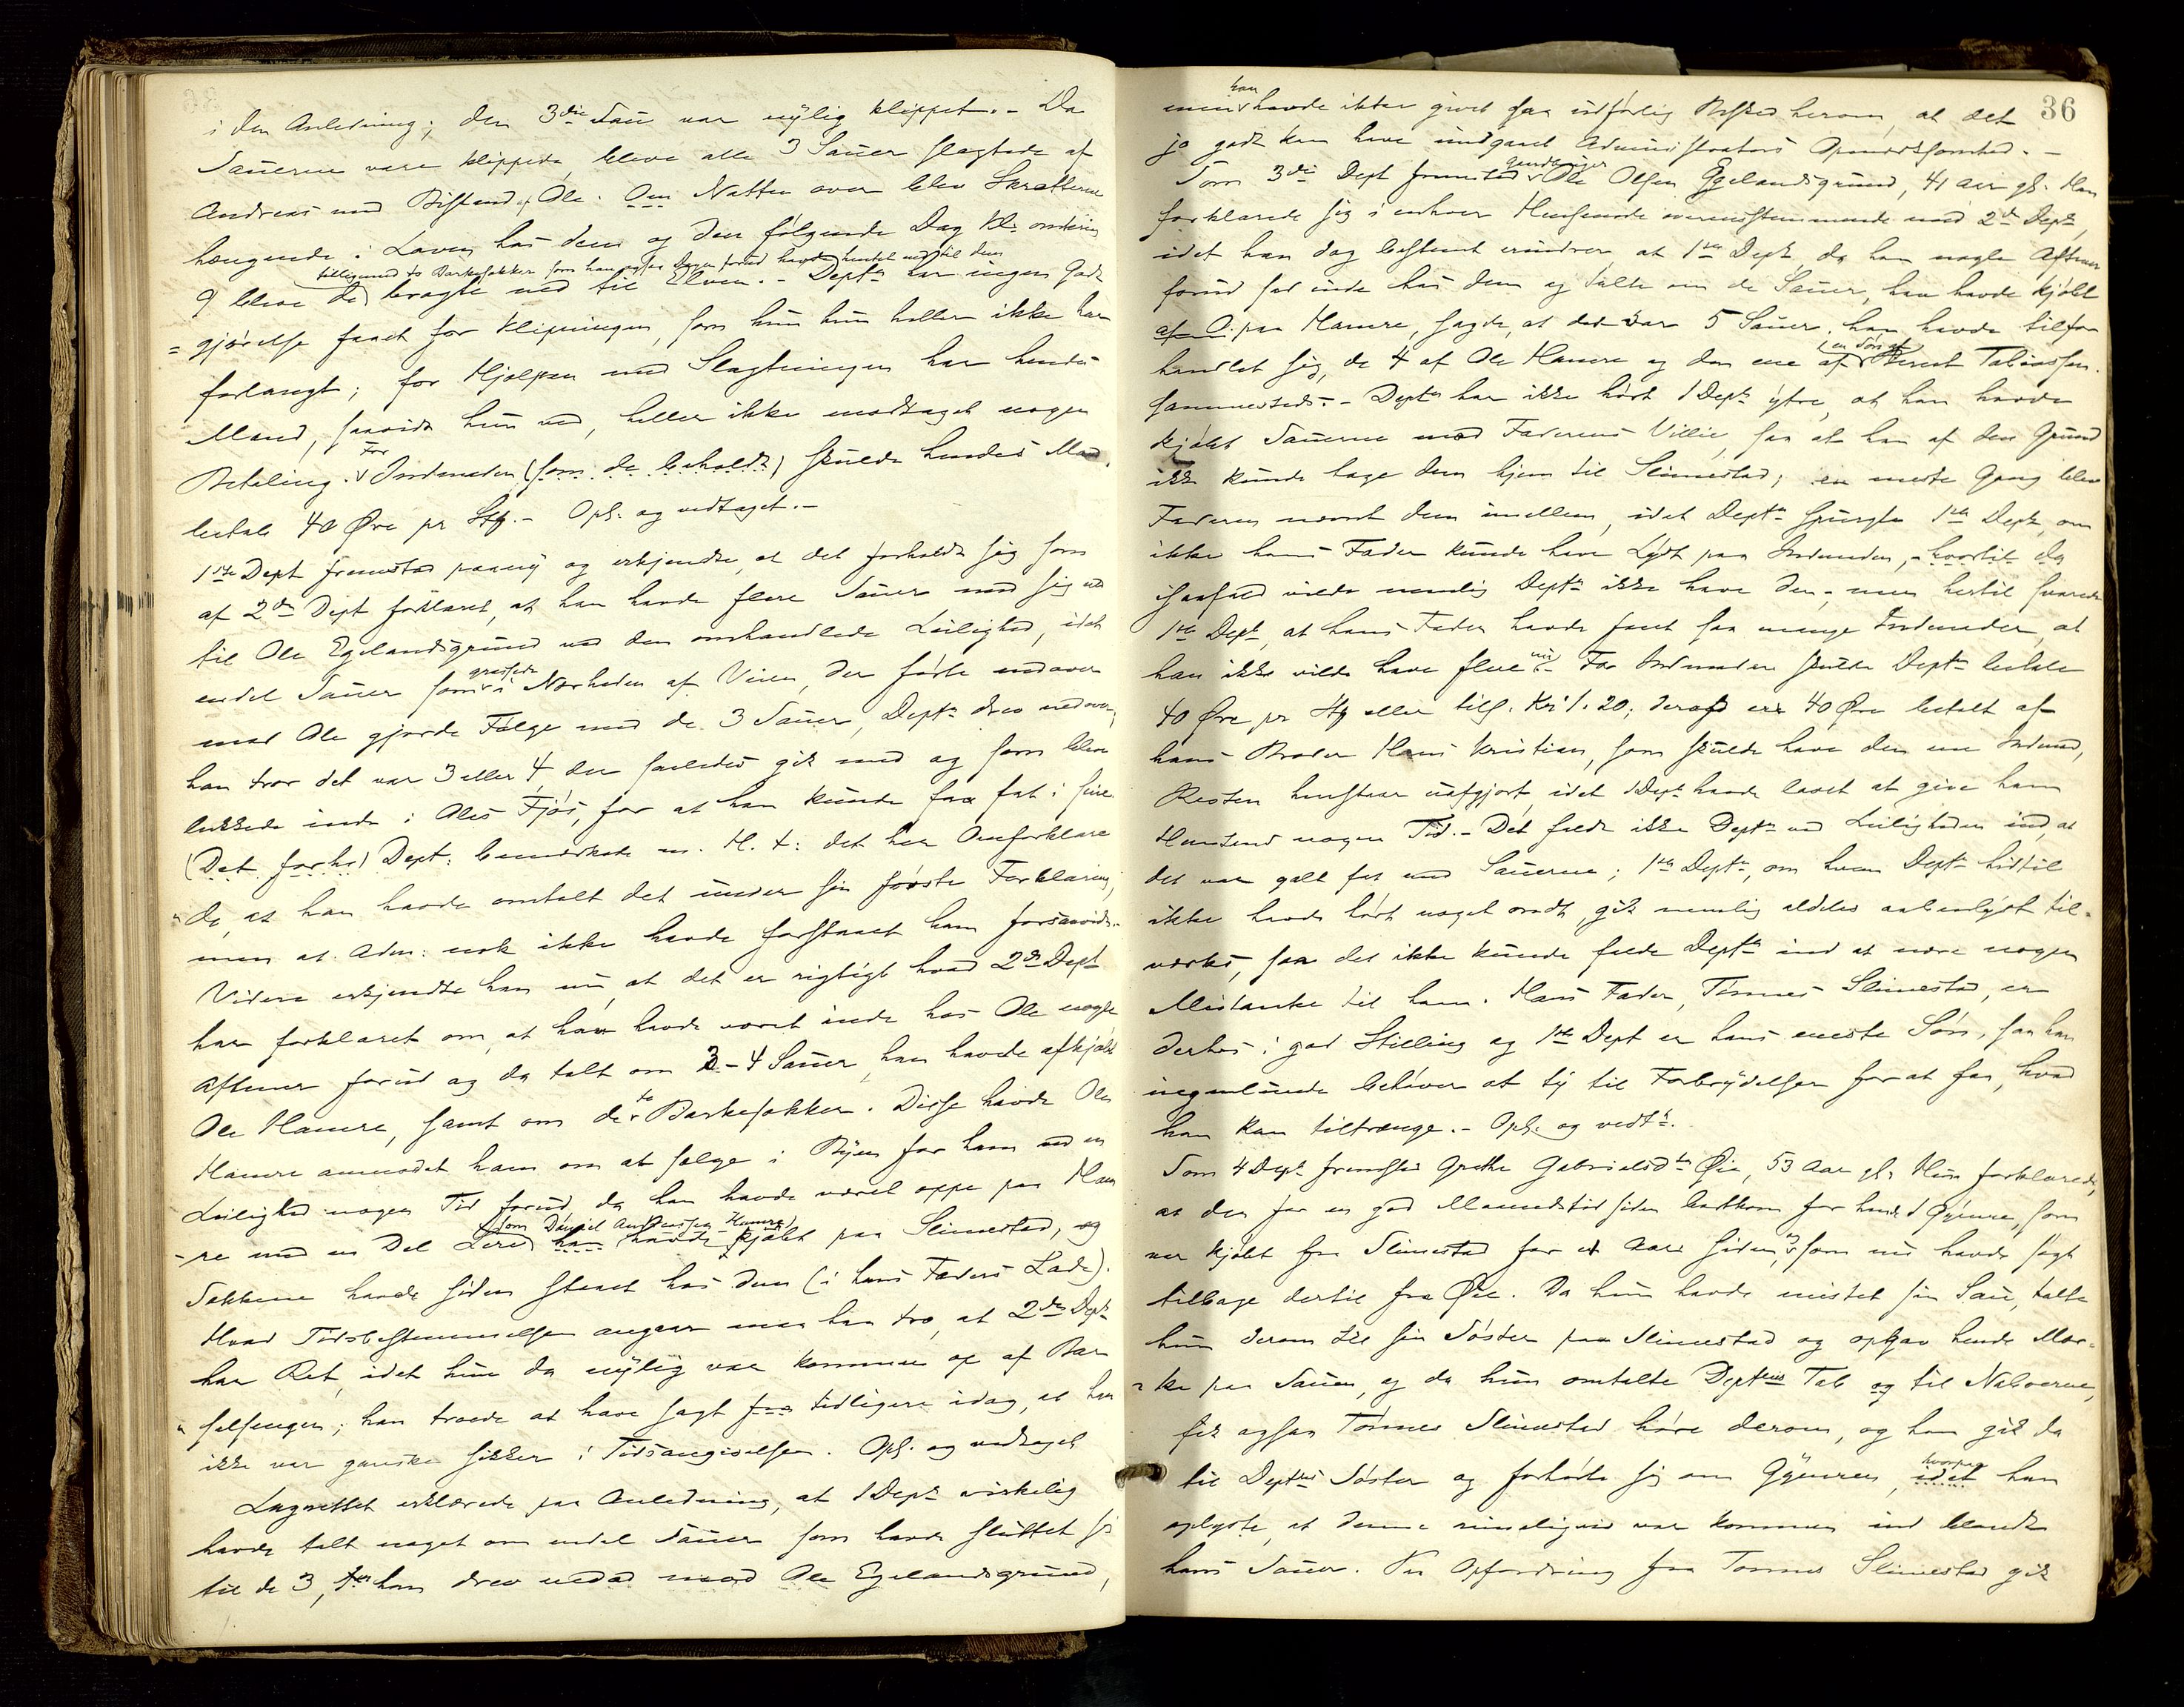 i den Anledning; den 3die Sau var nylig klippet. - Da
Sauerne vare klippede, bleve alle 3 Sauer slagtede af
Andreas med Bistand af Ole. Om Natten over blev Skrotterne
hængende i Laven hos dem og den følgende Dag Kl. omkring
tilligemed to Barkesækker som han ogsaa Dagen forud havde hentet ned til dem
9 bleve de bragte ned til Elven. - Deptn har ingen Godt
=gjørelse faaet for Klipningen, som hun hun heller ikke har
forlangt; for Hjælpen med Slagtningen har hendes
Mand, saavidt hun ved, heller ikke modtaget nogen
Betaling. For Indmaden (som de beholdt) skulde hendes Mand
betale 40 Øre pr Stk. - Opl. og vedtaget. -
1ste Dept fremstod paany og erkjendte, at det forholdt sig som
af 2den Dept forklaret, at han havde flere Sauer med sig ned
til Ole Egelandsgrund ved den omhandlede Leilighed, idet
endel Sauer som græssede i Nærheden af Veien, der førte nedover
mod Ole gjorde Følge med de 3 Sauer, Deptn drev nedover,
han tror det var 3 eller 4 der saaledes gik med og som bleve
lukkede inde i Oles Fjøs, for at han kunde faa fat i sine.
(Det forh) Dept. bemærkede m. H. t. det her Omforklare
=de, at han havde omtalt det under sin første Forklaring,
men at Adm. nok ikke havde forstaaet ham forsaavidt. -
Videre erkjendte han nu, at det er rigtigt hvad 2den Dept
har forklaret om, at han havde været inde hos Ole nogle
Aftener forud og da talt om 3-4 Sauer, han havde afkjøbt
Ole Hamre, samt om de to Barkesækker. Disse havde Ole
Hamre anmodet ham om at sælge i Byen for ham ved en
Leilighed nogen Tid forud, da han havde været oppe paa Ham
(som Daniel Andressen Hamre)
=re med en Del Lered han havde kjøbt paa Slimestad, og
Sækkene havde siden staaet hos dem (i hans Faders Lade).
Hvad Tidsbestemmelsen angaar maa han tro, at 2den Dept
har Ret, idet hun da nylig var kommen op af Bar
=selsengen; han troede at have sagt fra tidligere idag, at han
ikke var ganske sikker i Tidsangivelsen. Opl. og vedtaget
Lagrettet erklærede paa Anledning, at 1 Dept virkelig
havde talt noget om endel Sauer som havde sluttet sig
til de 3, han drev nedad mod Ole Egelandsgrund,
36
men han havde ikke givet saa udførlig Besked herom, at det
jo godt kan have undgaaet Administrators Opmærksomhed. -
Som 3die Dept fremstod Gaardbruger Ole Olsen Egelandsgrund, 41 Aar gl. Han
forklarede sig i enhver Henseende overensstemmende med 2den Dept,
idet han dog bestemt erindrer, at 1ste Dept, da han nogle Aftener
forud sad inde hos dem og talte om de Sauer, han havde kjøbt
af O. paa Hamre, sagde, at det var 5 Sauer, han havde tilfor
handlet sig, de 4 af Ole Hamre og den ene af (en Søn af) Berent Tobiassen
sammesteds. - Deptn har ikke hørt 1 Dept ytre, at han havde
kjøbt Sauerne mod Faderens Villie, saa at han af den Grund
ikke kunde tage dem hjem til Slimestad; en eneste Gang blev
Faderen nævnt dem imellem, idet Deptn spurgte 1ste Dept, om
ikke hans Fader kunde have Lyst paa Indmaden, - hvortil da
isaafald vilde nemlig Deptn ikke have den -, men hertil svarede
1ste Dept, at hans Fader havde faaet saa mange Indmader, at
han ikke vilde have flere nu. - For Indmaden skulde Deptn betale
40 Øre pr Stk eller tils. Kr 1.20; deraf er 40 Øre betalt af
hans Broder Hans Kristian, som skulde have den ene Indmad,
Resten henstaar uafgjort, idet 1 Dept havde lovet at give ham
Henstand nogen Tid. - Det faldt ikke Deptn ved Leiligheden ind, at
det var galt fat med Sauerne; 1ste Dept, om hvem Deptn hidtil
ikke havde hørt noget ondt, gik nemlig aldeles aabenlyst til=
værks, saa det ikke kunde falde Deptn ind at nære nogen
Mistanke til ham. Hans Fader, Tønnes Slimestad, er
derhos i god Stilling og 1ste Dept er hans eneste Søn, saa han
ingenlunde behøver at ty til Forbrydelser for at faa, hvad
han kan tiltrænge. - Opl. og vedt.
Som 4 Dept fremstod Grethe Gabrielsdtr Øie, 53 Aar gl. Hun forklarede,
at der for en god Maanedstid siden bortkom for hende 1 Gymre, som
var kjøbt fra Slimestad for et Aar siden, og som nu havde søgt
tilbage dertil fra Øie. Da hun havde mistet sin Sau, talte
hun derom til sin Søster paa Slimestad og opgav hende Mær=
=ke paa Sauen, og da hun omtalte Deptens Tab og til Naboerne,
fik ogsaa Tønnes Slimestad høre derom, og han gik da
til Deptns Søster og forhørte sig om Gymren, idet hvorpaa han
oplyste, at denne rimeligvis var kommen ind blandt
hans Sauer. Paa Opfordring fra Tønnes Slimestad gik